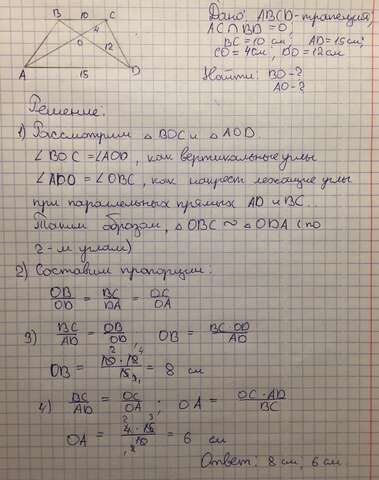 B 10 C
4
O
12
A 15 D
Дано: ABCD-трапеция,
AC∩BD = O;
BC = 10 см; AD = 15 см;
CO = 4 см; DO = 12 см
Найти: BO - ?
AO - ?
Решение:
1) Рассмотрим △ BOC и △ AOD.
∠ BOC = ∠AOD, как вертикальные углы
∠ ADO = ∠ OBC, как накрест лежащие углы
при параллельных прямых AD и BC.
Таким образом, △ OBC ~ △ ODA (по
2-м углам)
2) Составим пропорции:
OB/OD = BC/DA = OC/OA
3) BC/AD = OB/OD, OB = BC·OD/AD
OB = 10·12/15 = 8 см
4) BC/AD = OC/OA; OA = OC·AD/BC
OA = 4·15/10 = 6 см
Ответ: 8 см, 6 см.